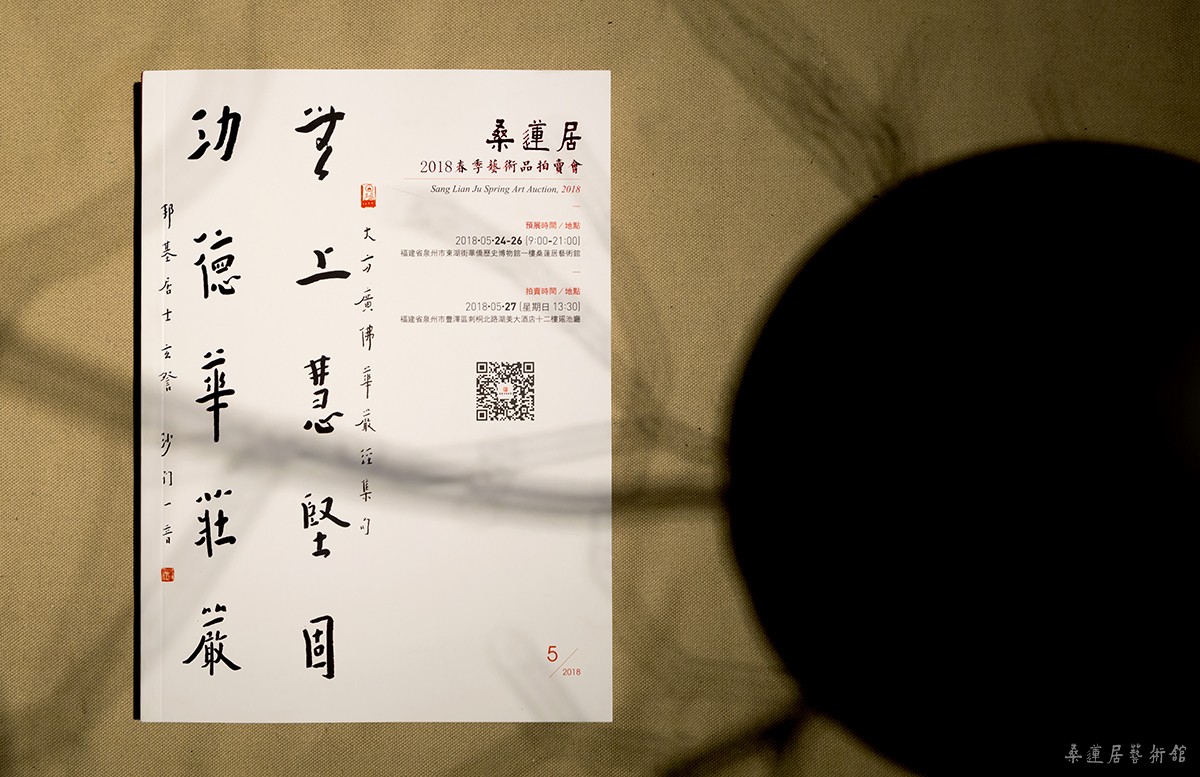 桑蓮居
2018春季藝術品拍賣會
Sang Lian Ju Spring Art Auction, 2018
預展時間／地點
2018·05·24-26 (9:00-21:00)
福建省泉州市東湖街華僑歷史博物館一樓桑蓮居藝術館
拍賣時間／地點
2018·05·27 (星期日 13:30)
福建省泉州市豐澤區刺桐北路湖美大酒店十二樓瑶池廳
大方廣佛華嚴經集句
無上慧堅固
功德華莊嚴
邦基居士玄詧 沙门一音
5／2018
桑蓮居藝術館